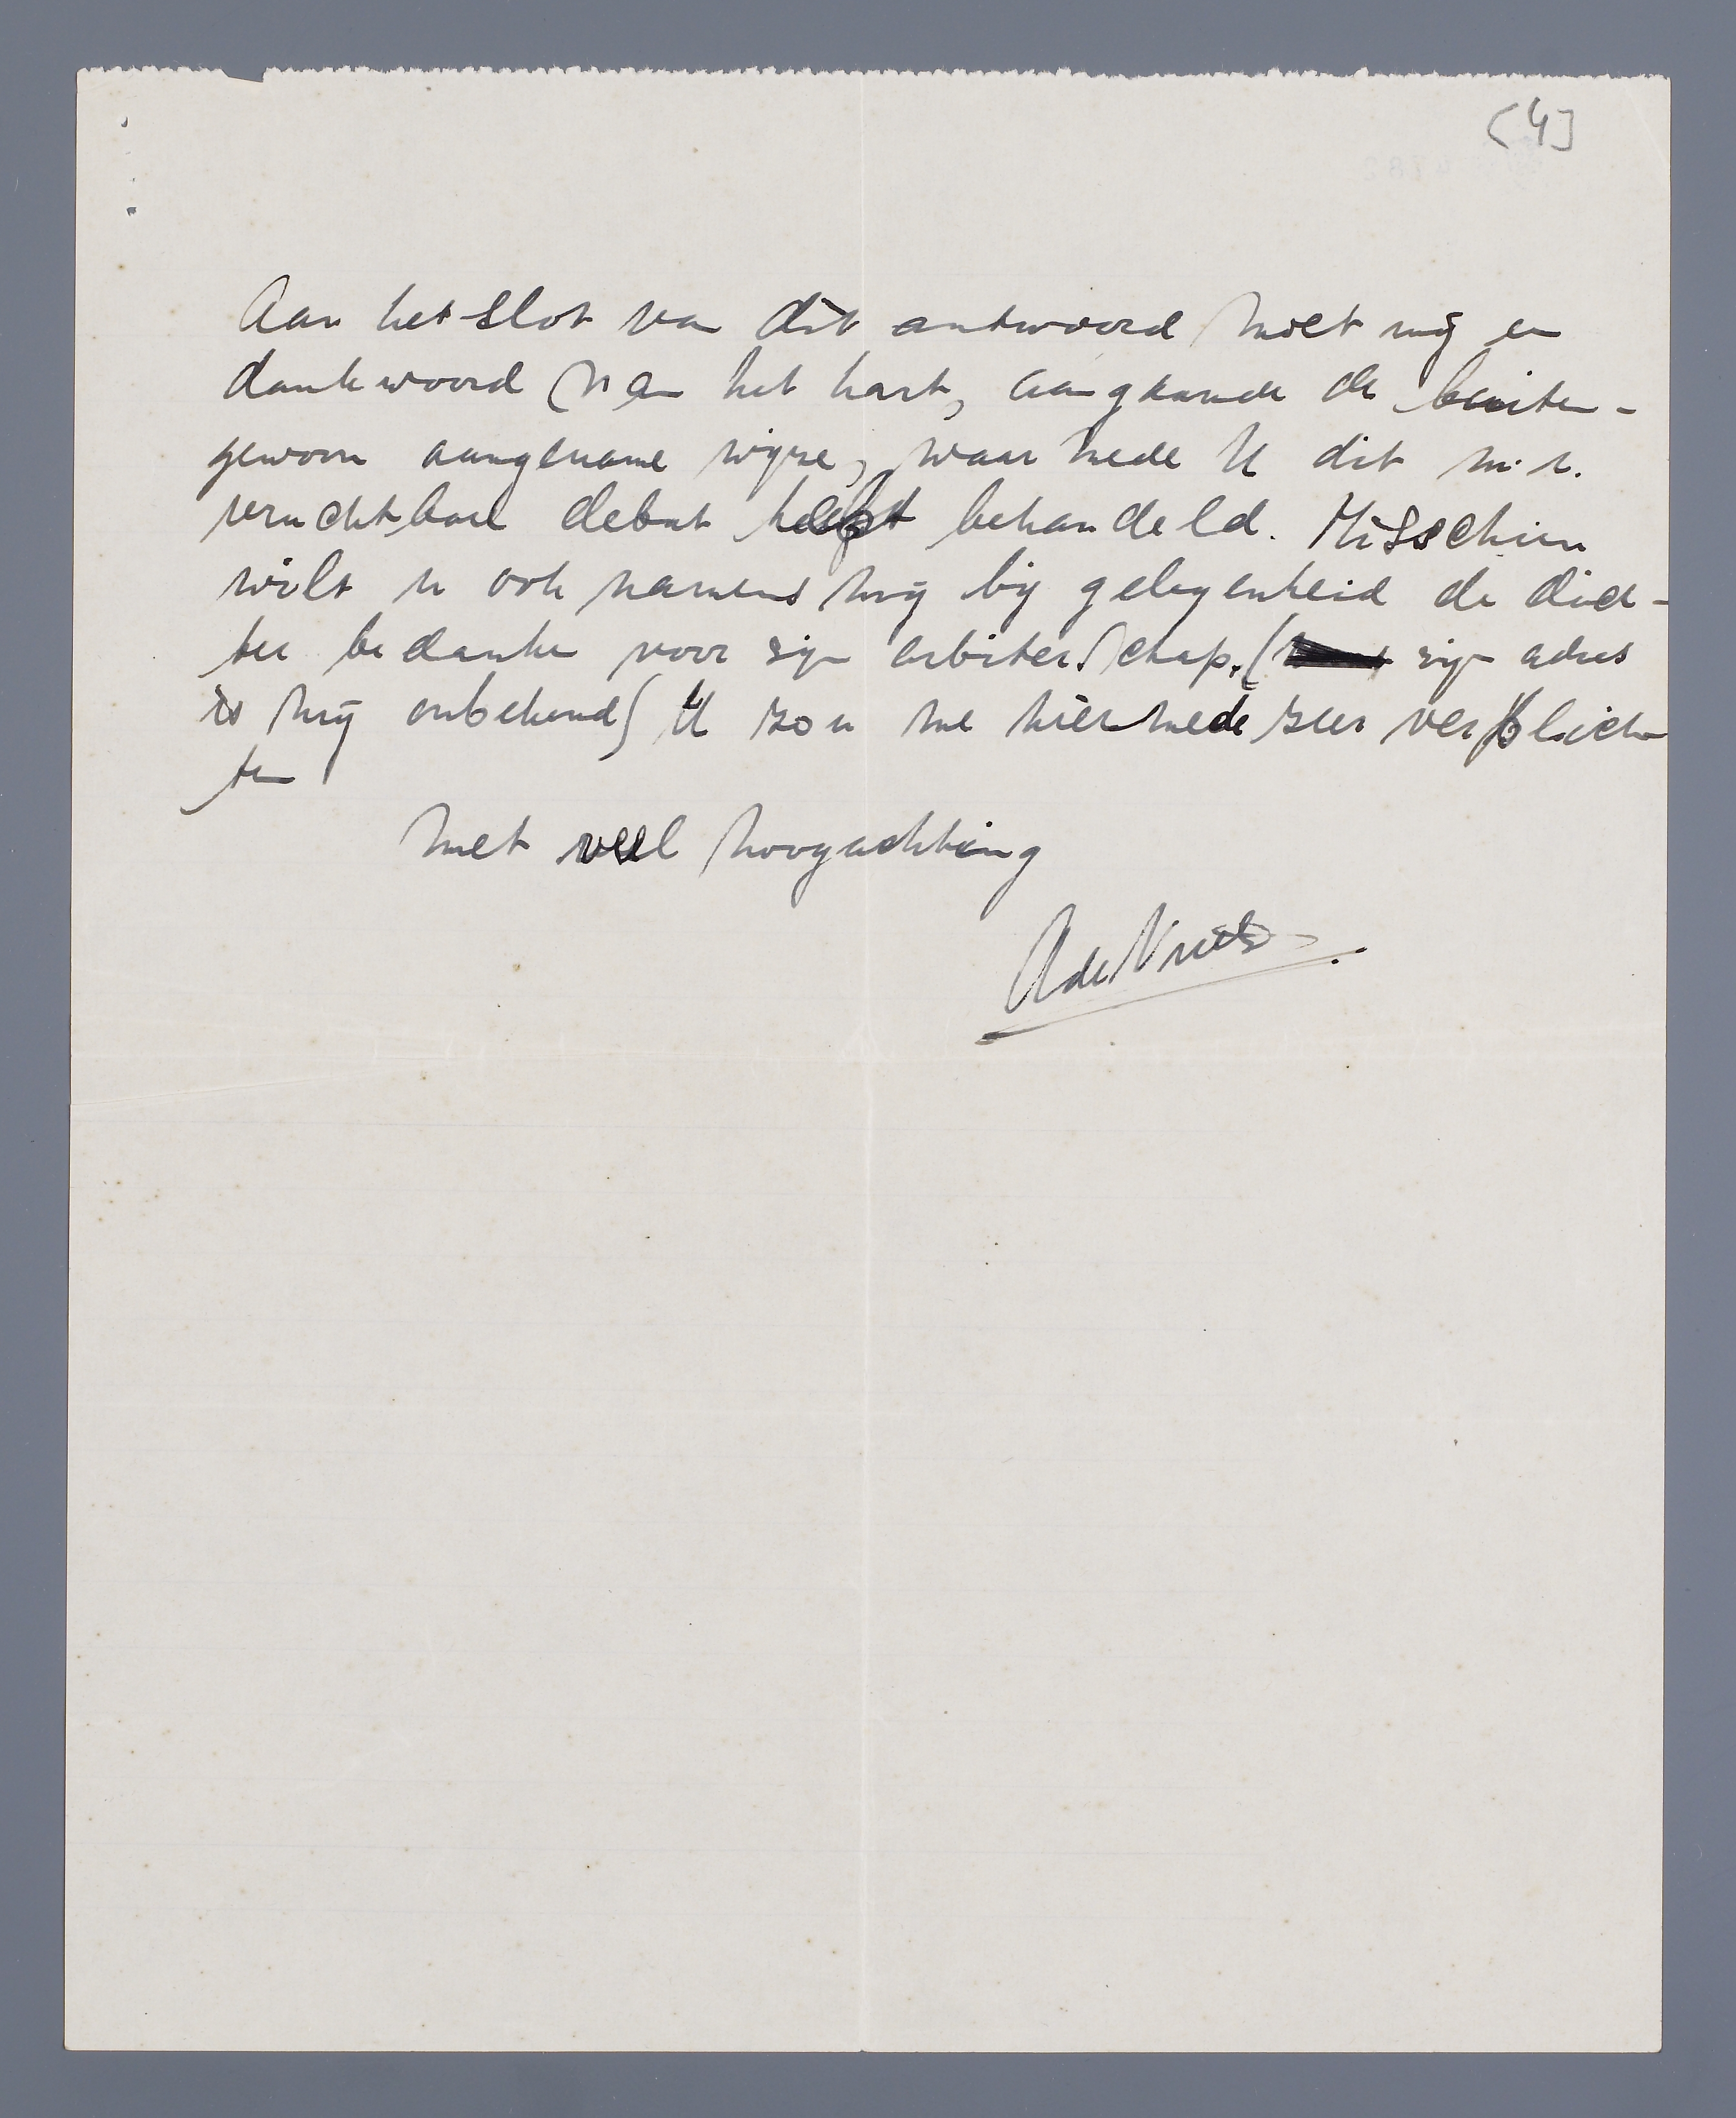 (4]
Aan het slot van dit antwoord moet mij een
dankwoord van het hart, aangaande de buiten-
gewoon aangename wijze, waarmede U dit m.i.
vruchtbare debat heeft behandeld. Misschien
wilt u ook namens mij bij gelegenheid de dich-
ter bedanken voor zijn arbiterschap. ( zijn adres
is mij onbekend) U zou me hiermede zeer verplich-
ten
met veel hoogachting
AdeVries